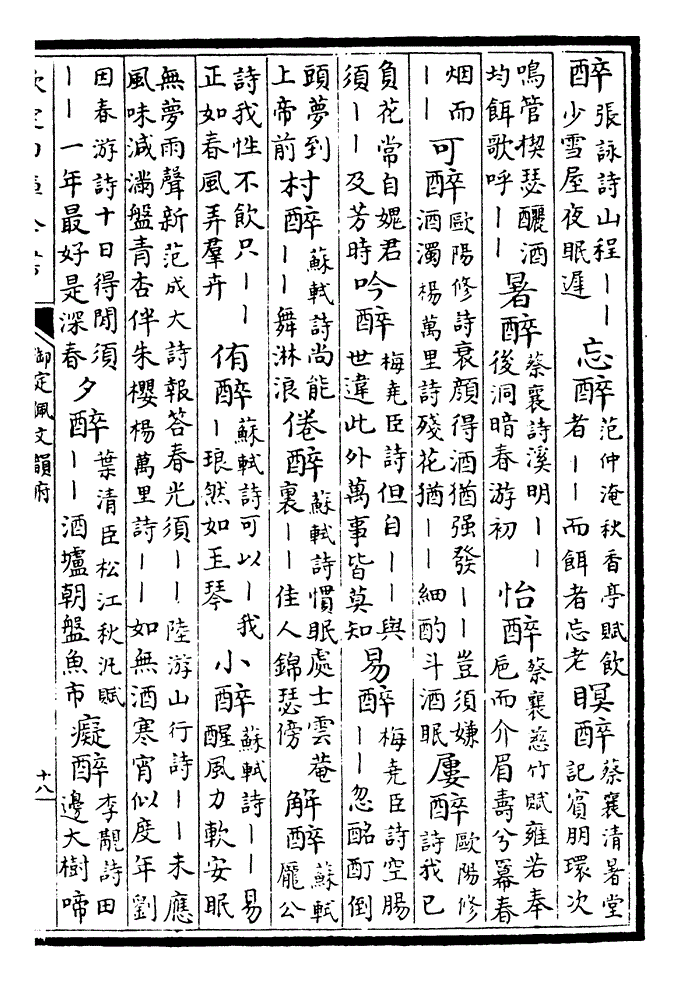 醉張詠詩山程丨丨少雪屋夜眠遲忘醉范仲淹秋香亭賦飲者丨丨而餌者忘老瞑醉蔡襄清暑堂記賓朋環次
鳴管揳瑟釃酒均餌歌呼丨丨暑醉蔡襄詩溪明丨丨後洞暗春游初怡醉蔡襄慈竹賦雍若奉巵而介眉壽兮冪春
烟而丨丨可醉歐陽修詩衰顔得酒猶强發丨丨豈須嫌酒濁楊萬里詩殘花猶丨丨細酌斗酒眠屢醉歐陽修詩我已
負花常自媿君須丨丨及芳時吟醉梅堯臣詩但自丨丨與世違此外萬事皆莫知易醉梅堯臣詩空腸丨丨忽酩酊倒
頭夢到上帝前村醉蘇軾詩尚能丨丨舞淋浪倦醉蘇軾詩慣眠處士雲菴裏丨丨佳人錦瑟傍解醉蘇軾龐公
詩我性不飲只丨丨正如春風弄羣卉侑醉蘇軾詩可以丨我丨琅然如玉琴小醉蘇軾詩丨丨易醒風力軟安眠
無夢雨聲新范成大詩報答春光須丨丨陸游山行詩丨丨未應風味減滿盤青杏伴朱櫻楊萬里詩丨丨如無酒寒宵似度年劉
因春游詩十日得閒須丨丨一年最好是深春夕醉葉清臣松江秋汎賦丨丨酒壚朝盤魚市癡醉李覯詩田邊大樹啼
欽定四庫全書 御定佩文韻府 十八